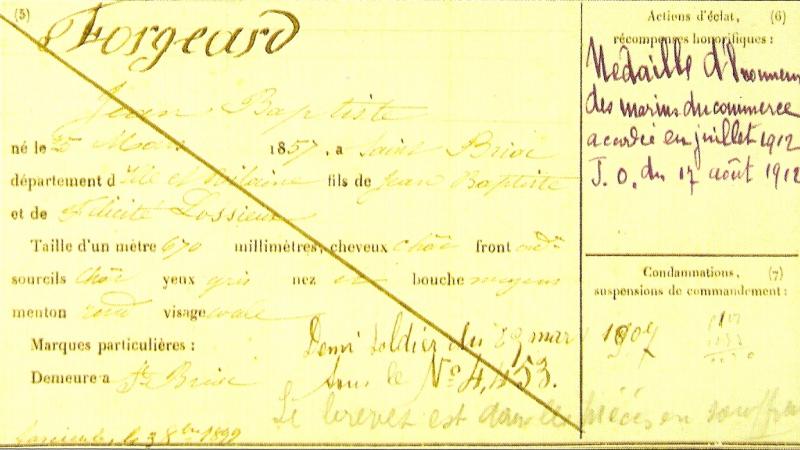 (5)
Forgeard
Jean Baptiste
né le 25 Mars 1857, a Saint Briac
département d'Ille et Vilaine fils de Jean Baptiste
et de Félicité Lossieux
Taille d'un mètre 670 millimètres, cheveux chât front ord.re
sourcils chât yeux gris nez bouche moyenne
menton rond visage ovale
Marques particulières :
Demeure a St Briac
Demi soldier du 29 mars 1907
sous le No 4,153.
Le brevet est dans les pièces en souffra
le 3 8bre 1899
Actions d'éclat, (6)
récompenses honorifiques :
Médaille d'honneur
des marins du commerce
acordée en juillet 1912
J. O. du 17 août 1912
Condamnations, (7)
suspensions de commandement :